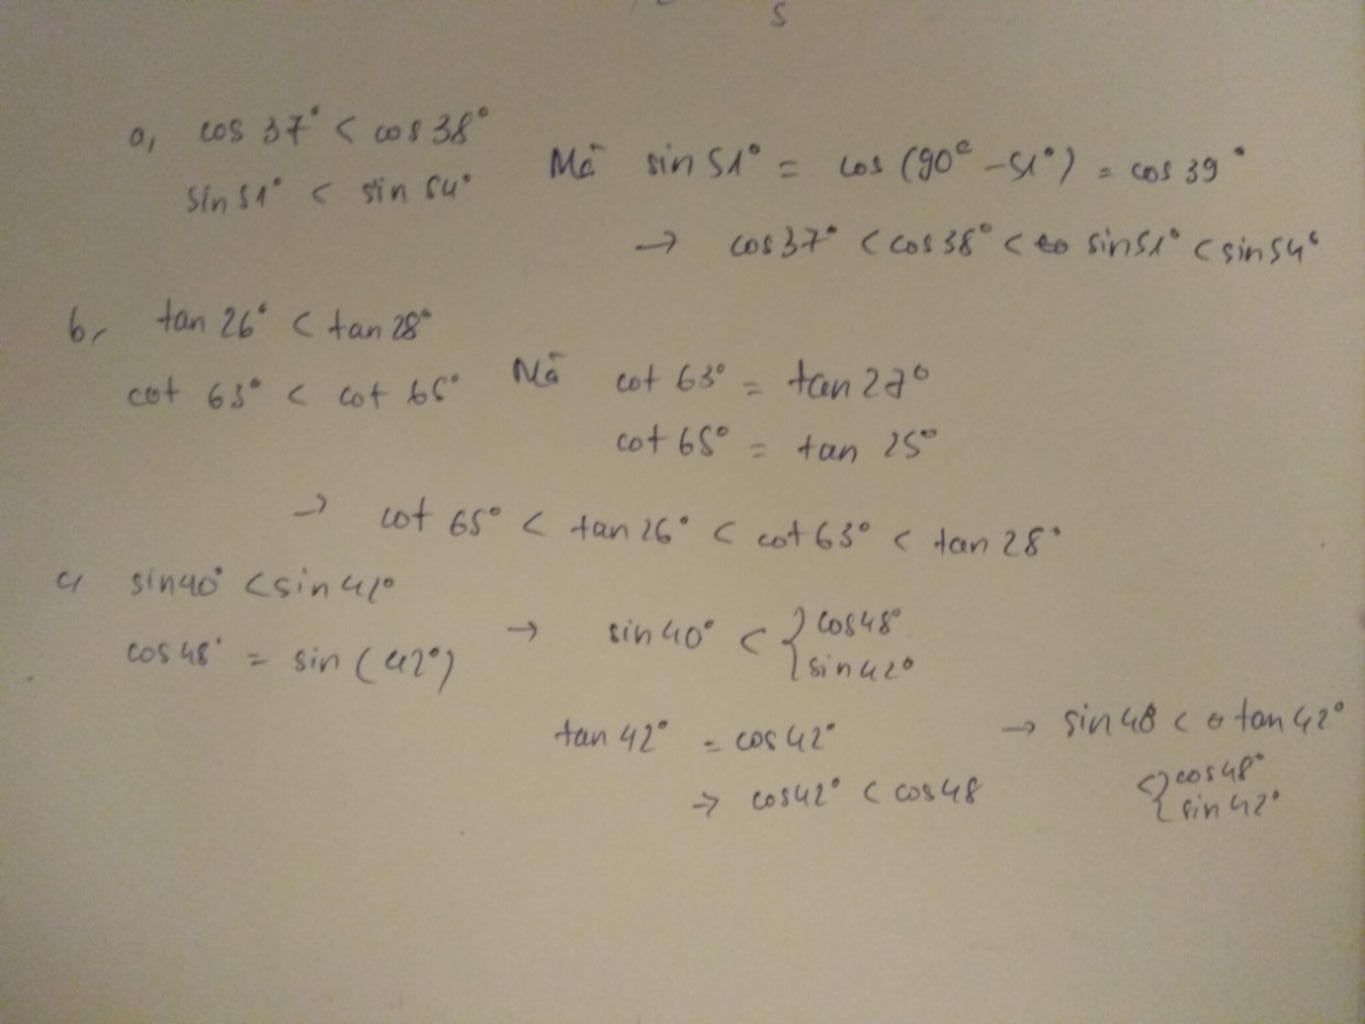 S
a, cos 37° < cos 38°
sin 51° < sin 54°
Mà sin 51° = cos (90° - 51°) = cos 39°
→ cos 37° < cos 38° < sin 51° < sin 54°
b, tan 26° < tan 28°
cot 63° < cot 65°
Mà cot 63° = tan 27°
cot 65° = tan 25°
→ cot 65° < tan 26° < cot 63° < tan 28°
c, sin 40° < sin 42°
cos 48° = sin (42°)
→ sin 40° < { cos 48°
sin 42°
tan 42° = cos 42°
→ cos 42° < cos 48
→ sin 40 < tan 42°
< { cos 48°
sin 42°